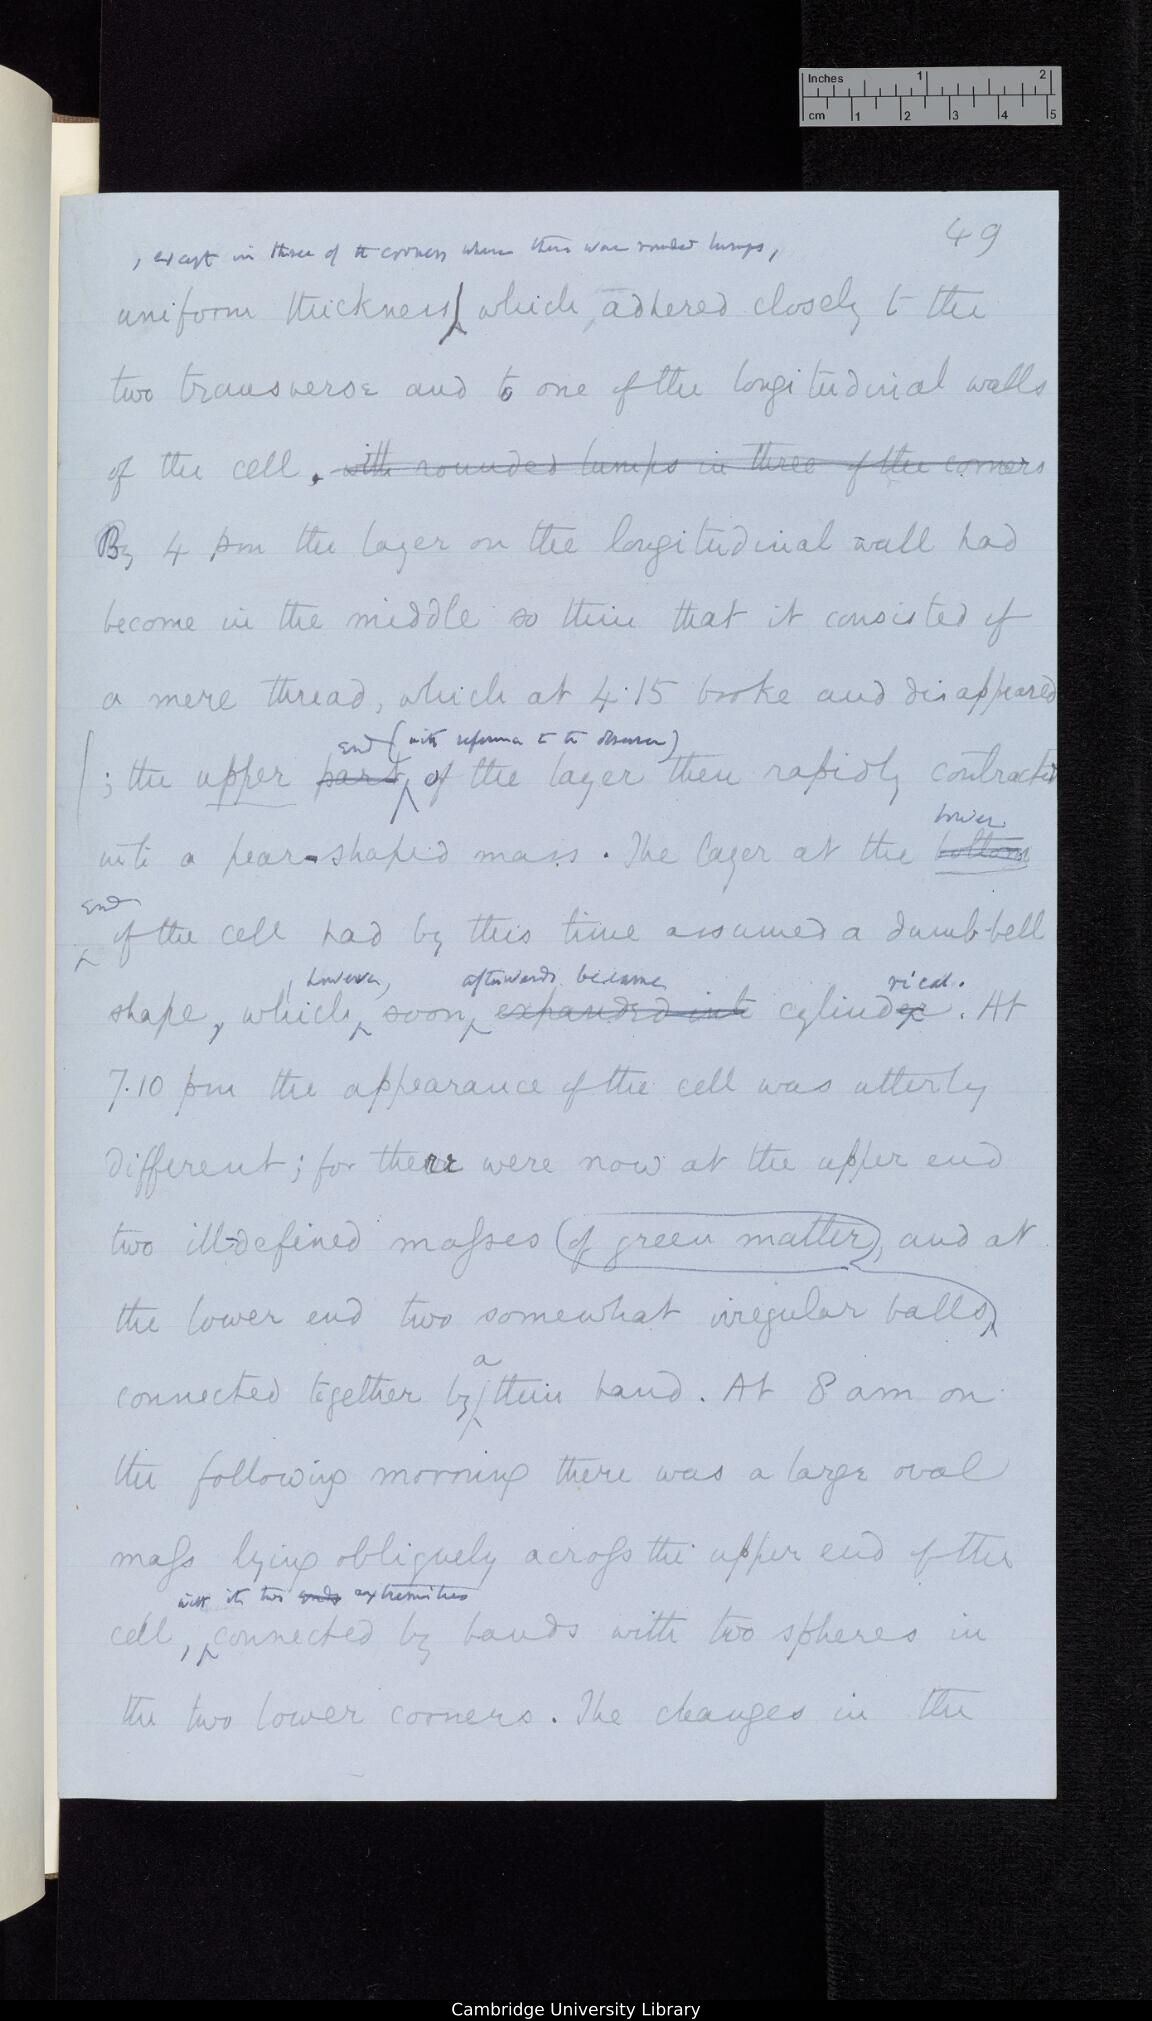 Inches 1 2
cm 1 2 3 4 5
49
, except in three of the corners where there were rounded lumps,
uniform thickness which, adhered closely to the
two transverse and to one of the longitudinal walls
of the cell. with rounded lumps in three of the corners
By 4 pm the layer on the longitudinal wall had
become in the middle so thin that it consisted of
a mere thread, which at 4.15 broke and disappeared
end (with reference to the observer)
; the upper part, of the layer then rapidly contracted
lower
into a pear-shaped mass. The layer at the bottom
end
of the cell had by this time assumed a dumb-bell
, however, afterwards became rical.
shape, which, soon, expanded into cylinder. At
7.10 pm the appearance of the cell was utterly
different; for there were now at the upper end
two ill-defined masses (of green matter), and at
the lower end two somewhat irregular balls,
a
connected together by thin band. At 8 am on
the following morning there was a large oval
mass lying obliquely across the upper end of the
with its two ends extremities
cell, connected by bands with two spheres in
the two lower corners. The changes in the
Cambridge University Library